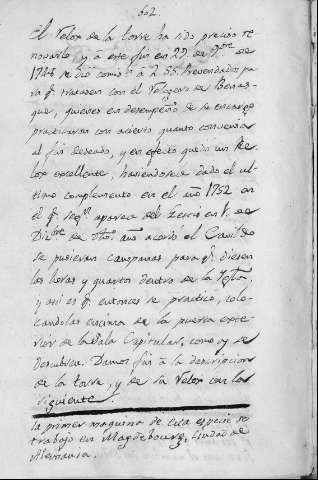 602
El Relox de la torre ha sido preciso re
novarlo, y á este fin en 29 de
1746 se dio comis.n á 2 SS. Prevendados pa
ra q.e tratasen con el Reloxero de Benas-
que, quienes en desempeño de su encargo
practicaron con acierto quanto convenia
al fin deseado, y en efecto quedó un Re
lox excellente, haviendosele dado el ul
timo complemento en el año 1752 en
el q.e seg.n aparece del de
Diz.bre de dho. año acordó el Cavildo
se pusieran campanas para q.e diesen
las horas y quartos dentro de la Iglesia,
y asi es q.e entonces se practicó, colo-
candolas encima de la puerta exte-
rior de la Sala Capitular, como oy se
descubre. Damos fin á la descripcion
de la torre, y de su Relox con lo
siguiente.
la primer maquina de esta especie se
trabajo en Magdebourg, Ciudad de
Alemania.